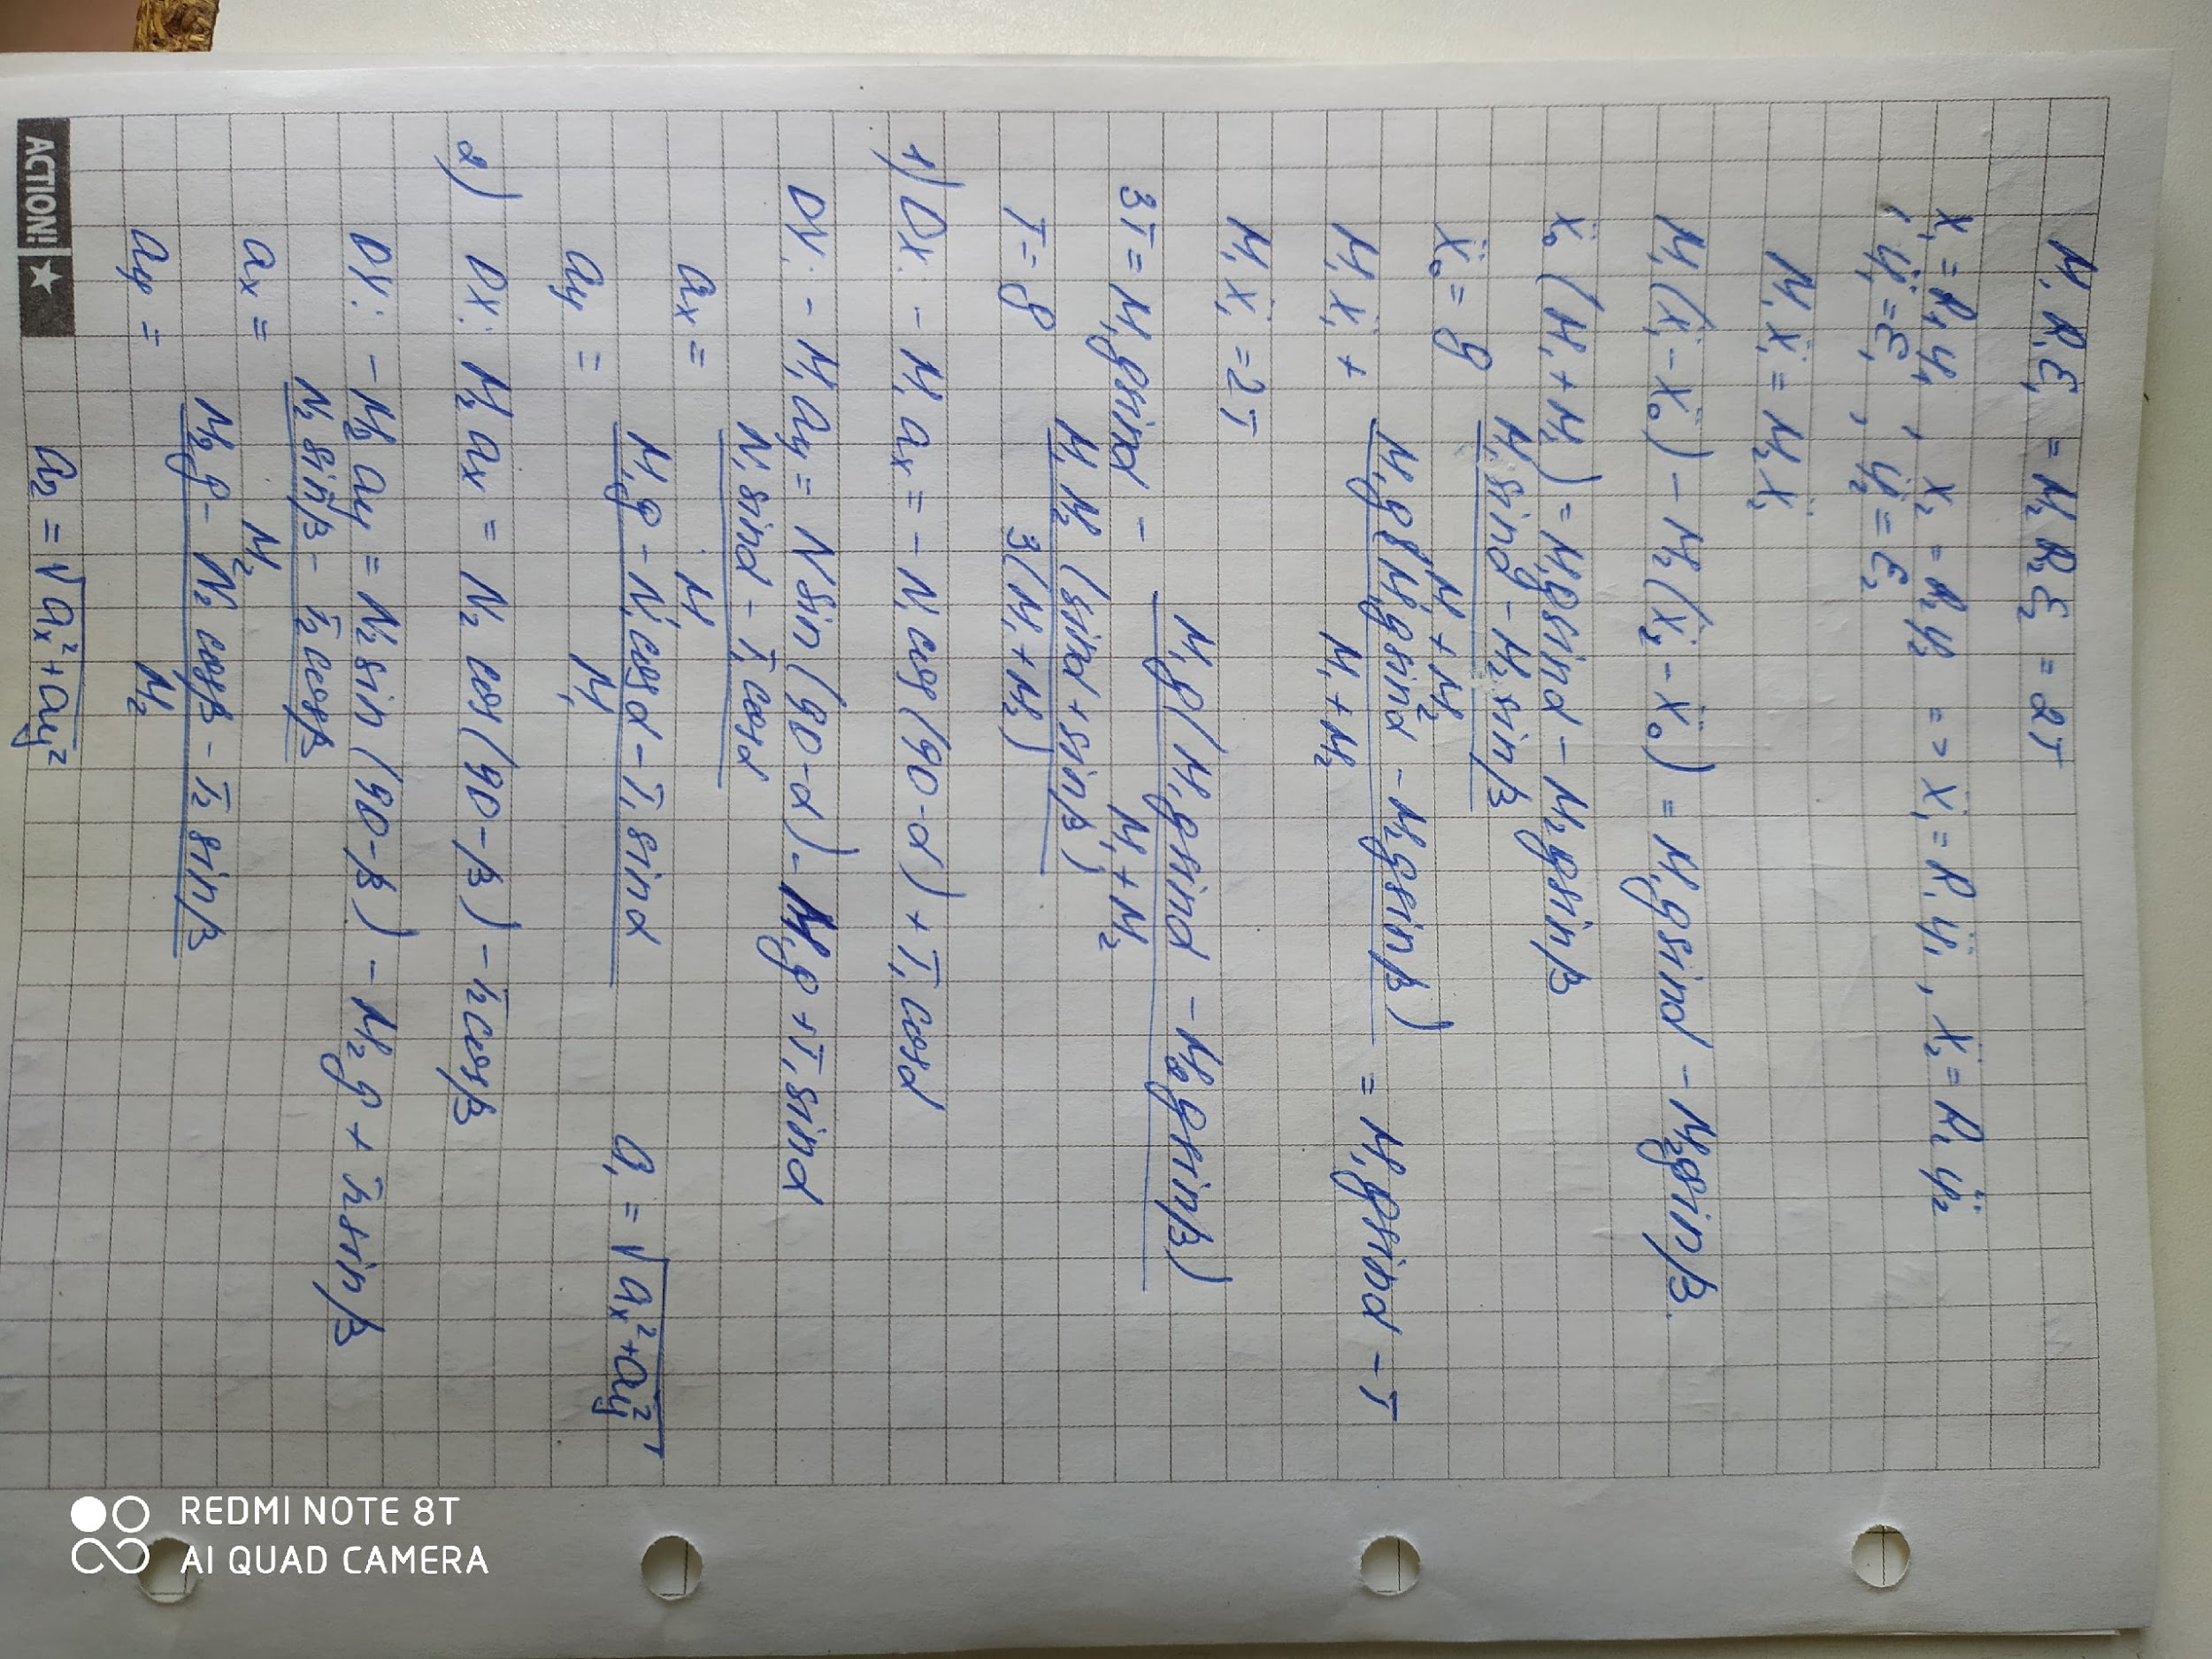 M₁R₁ε₁ = M₂R₂ε₂ = 2T
x₁ = R₁φ₁ , x₂ = R₂φ₂ => ẍ₁ = R₁φ̈₁ , ẍ₂ = R₂φ̈₂
φ̈₁ = ε₁ , φ̈₂ = ε₂
M₁ẍ₁ = M₂ẍ₂
M₁(ẍ₁ - ẍ₀) - M₂(ẍ₂ - ẍ₀) = M₁g sinα - M₂g sinβ
ẍ₀(M₁ + M₂) = M₁g sinα - M₂g sinβ
ẍ₀ = g (M₁ sinα - M₂ sinβ) / (M₁ + M₂)
M₁ẍ₁ + M₁g(M₁g sinα - M₂g sinβ) / (M₁ + M₂) = M₁g sinα - T
M₁ẍ₁ = 2T
3T = M₁g sinα - M₁g(M₁g sinα - M₂g sinβ) / (M₁ + M₂)
T = g M₁M₂(sinα + sinβ) / 3(M₁ + M₂)
1) OX: - M₁aₓ = - N₁cos(90-α) + T₁cosα
OY: - M₁a_y = N sin(90-α) - M₁g + T₁sinα
aₓ = (N₁sinα - T₁cosα) / M₁
a_y = (M₁g - N₁cosα - T₁sinα) / M₁ a₁ = √(aₓ² + a_y²)
2) OX: M₂aₓ = N₂cos(90-β) - T₂cosβ
OY: - M₂a_y = N₂sin(90-β) - M₂g + T₂sinβ
aₓ = (N₂sinβ - T₂cosβ) / M₂
a_y = (M₂g - N₂cosβ - T₂sinβ) / M₂
a₂ = √(aₓ² + a_y²)
ACTION!
REDMI NOTE 8T
AI QUAD CAMERA